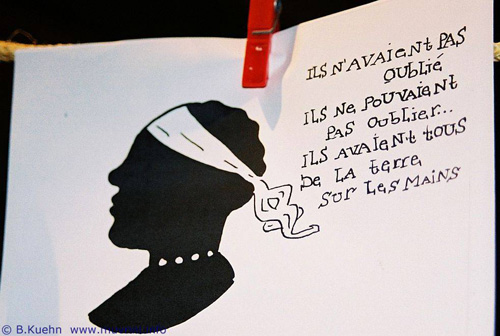 ILS N'AVAIENT PAS
OUBLIÉ
ILS NE POUVAIENT
PAS OUBLIER...
ILS AVAIENT TOUS
DE LA TERRE
SUR LES MAINS
© B.Kuehn